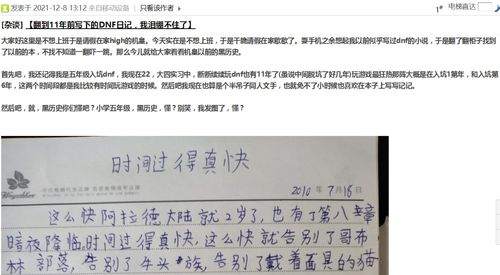 发表于 2021-12-8 13:12 来自移动设备 | 只看该作者
1# 电梯直达
[杂谈] 【翻到11年前写下的DNF日记，我泪绷不住了】
大家好这里是不想上班于是请假在家high的机皇。今天实在是不想上班，于是干脆请假在家歇歇了。耍手机之余想起我以前似乎写过dnf的小说，于是翻了翻柜子找到
了以前的本，不找不知道一翻吓一跳。那么今儿就给大家看看机皇以前的黑历史。
首先吧，我还记得我是五年级入坑dnf，我现在22，大四实习中，断断续续玩dnf也有11年了(虽说中间脱坑了好几年)玩游戏最狂热那阵大概是在入坑1第年，和入坑第
6年，这两个时间段都是我比较有时间玩游戏的时候。然后吧我现在也算是个半吊子同人文手，也就免不了小时候也喜欢在本子上写写记记。
然后吧，就，黑历史你们懂吧？小学五年级，黑历史，懂？别笑，我发图了，懂？
时间过得真快
2010 年 7月18日
这么快阿拉德大陆就2岁了，也有了第八章
暗夜降临.时间过得真快，这么快就告别了哥布
林部落，告别了牛头族，告别了戴着面具的猫